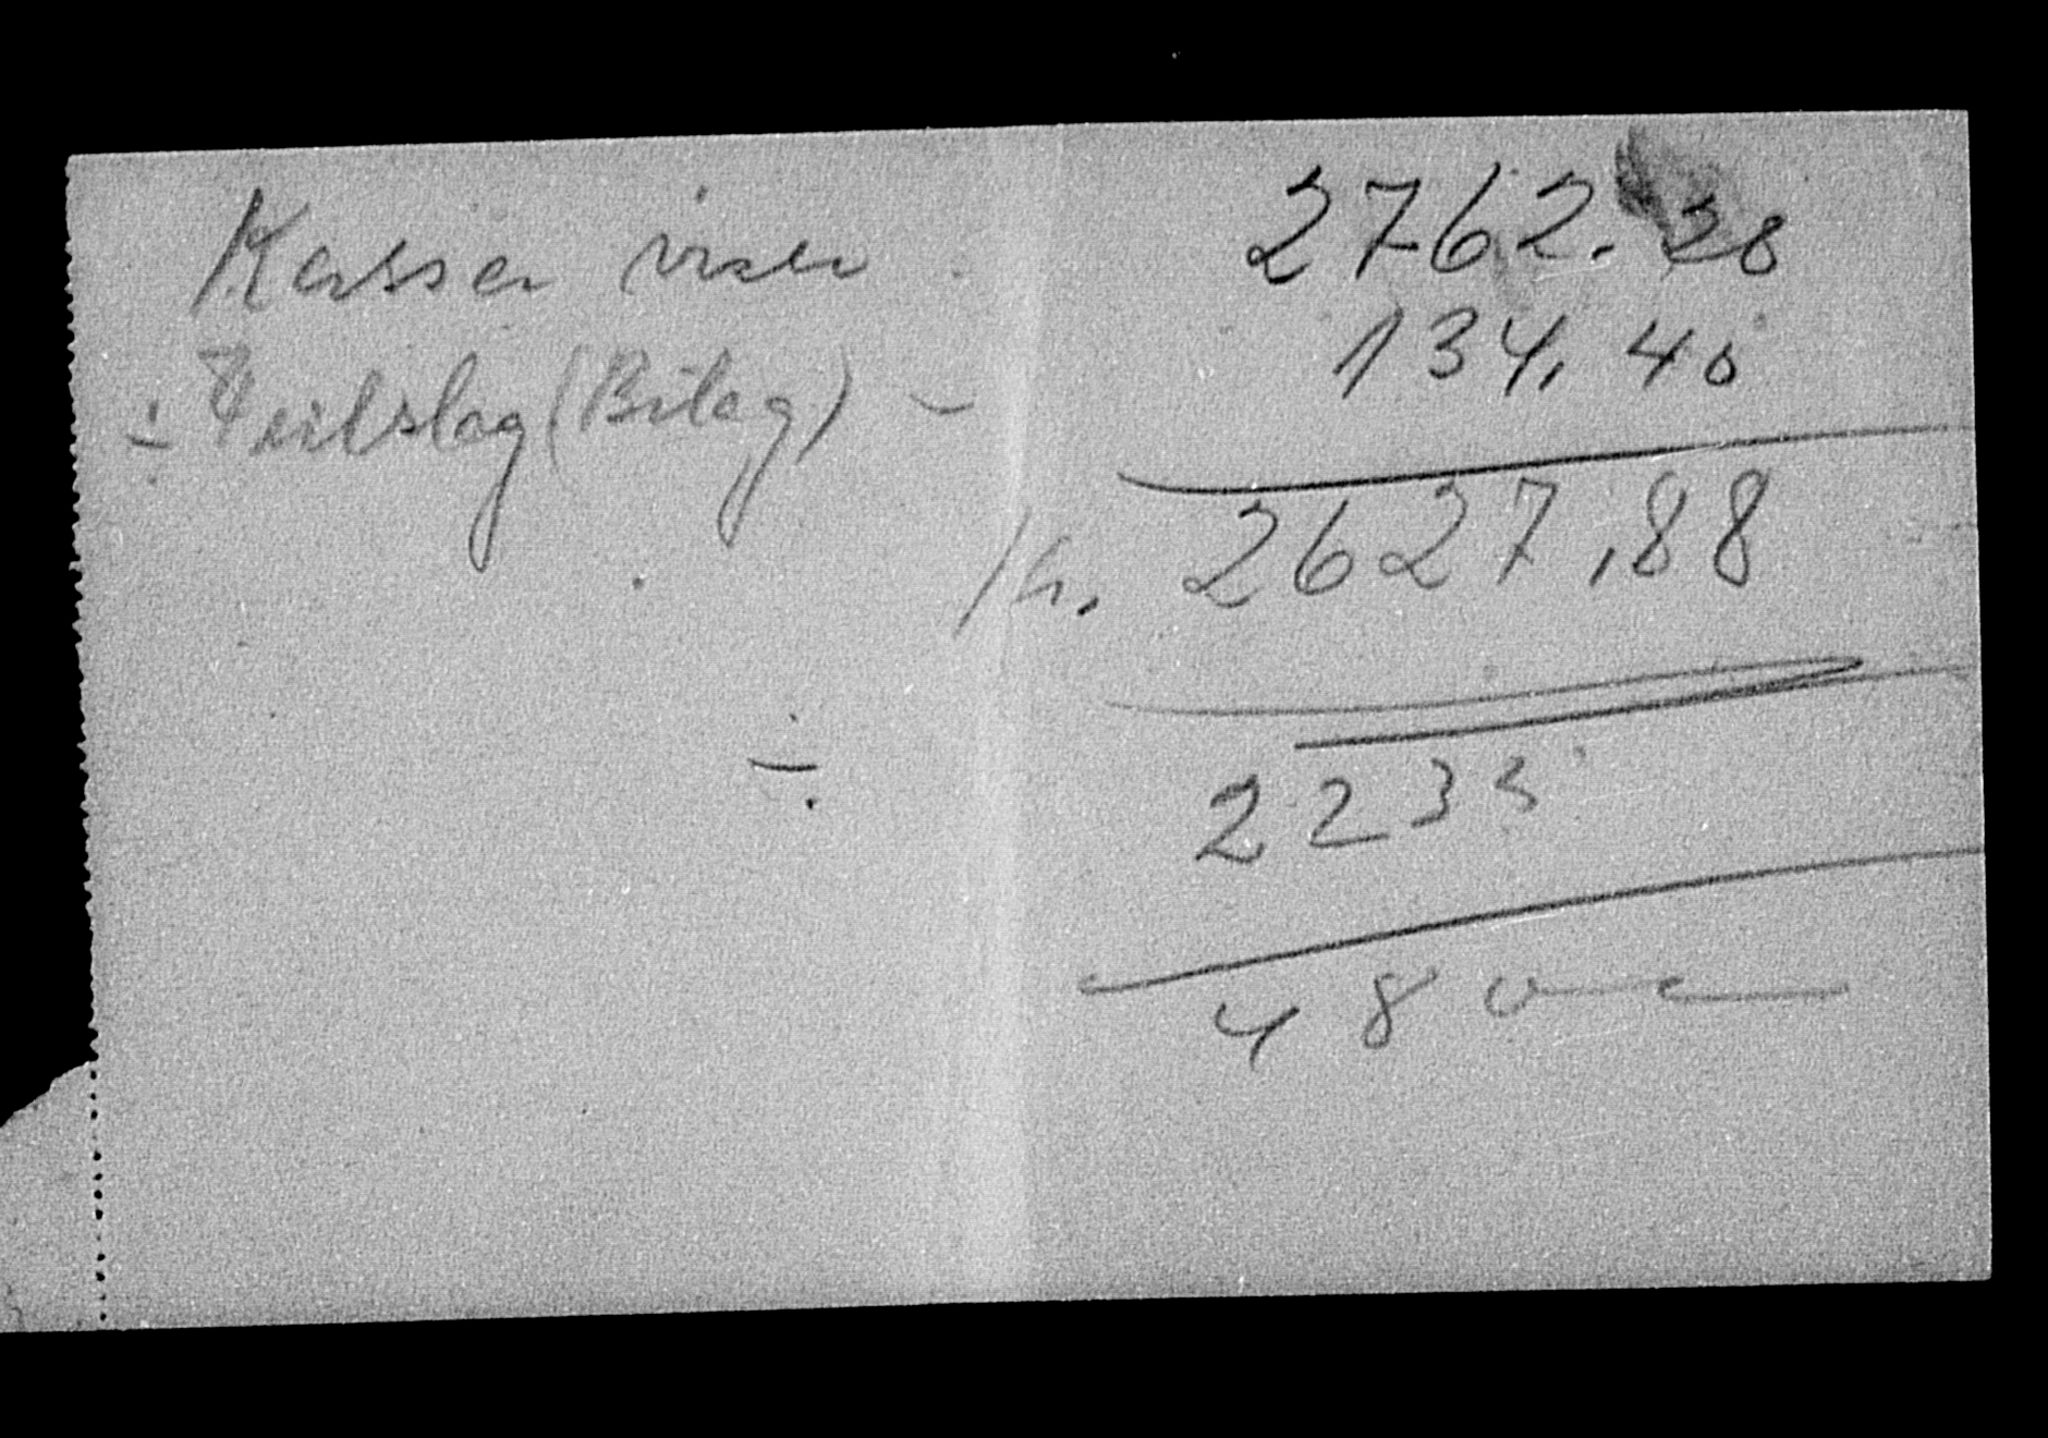 Kassa viser 2762.28
÷ Feilslag (Bilag) - 134,40
Kr. 2627,88
÷ 2233
480